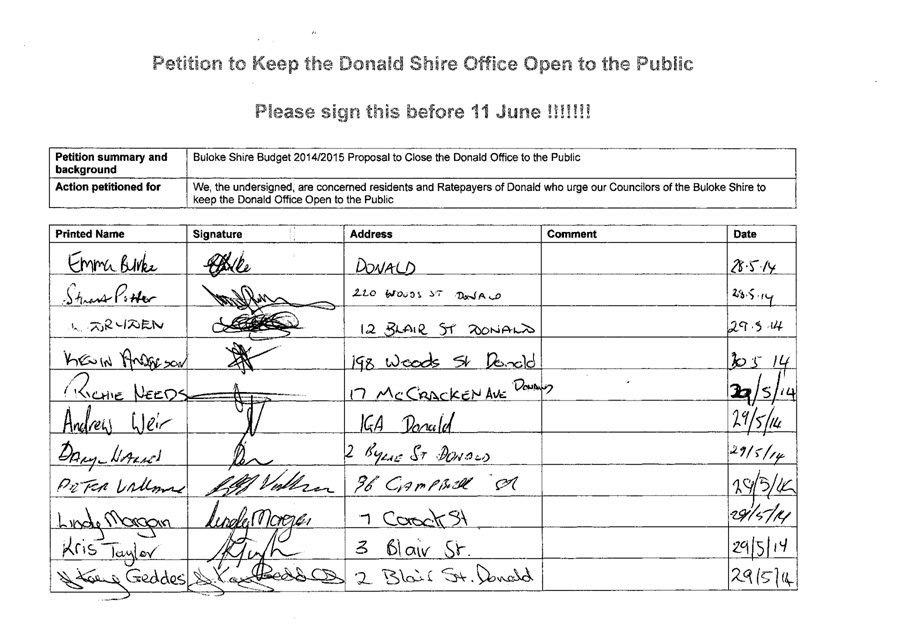 Petition to Keep the Donald Shire Office Open to the Public
Please sign this before 11 June !!!!!!!
Petition summary and background Buloke Shire Budget 2014/2015 Proposal to Close the Donald Office to the Public
Action petitioned for We, the undersigned, are concerned residents and Ratepayers of Donald who urge our Councilors of the Buloke Shire to
keep the Donald Office Open to the Public
Printed Name Signature Address Comment Date
Emma Burke DONALD 28.5.14
Stuart Potter 220 WOODS ST DONALD 28.5.14
DRYDEN 12 BLAIR ST DONALD 29.5.14
KEVIN ANDERSON 198 Woods St Donald 30 5 14
RICHIE NEEDS 17 McCRACKEN AVE DONALD /5/14
Andrew Weir IGA Donald 29/5/14
2 BYRNE ST DONALD 29/5/14
PETER 96 CAMPBELL ST 29/5/14
Lindy Morgan Lindy Morgan 7 St 29/5/14
Kris Taylor 3 Blair St. 29/5/14
Geddes 2 Blair St. Donald 29/5/14